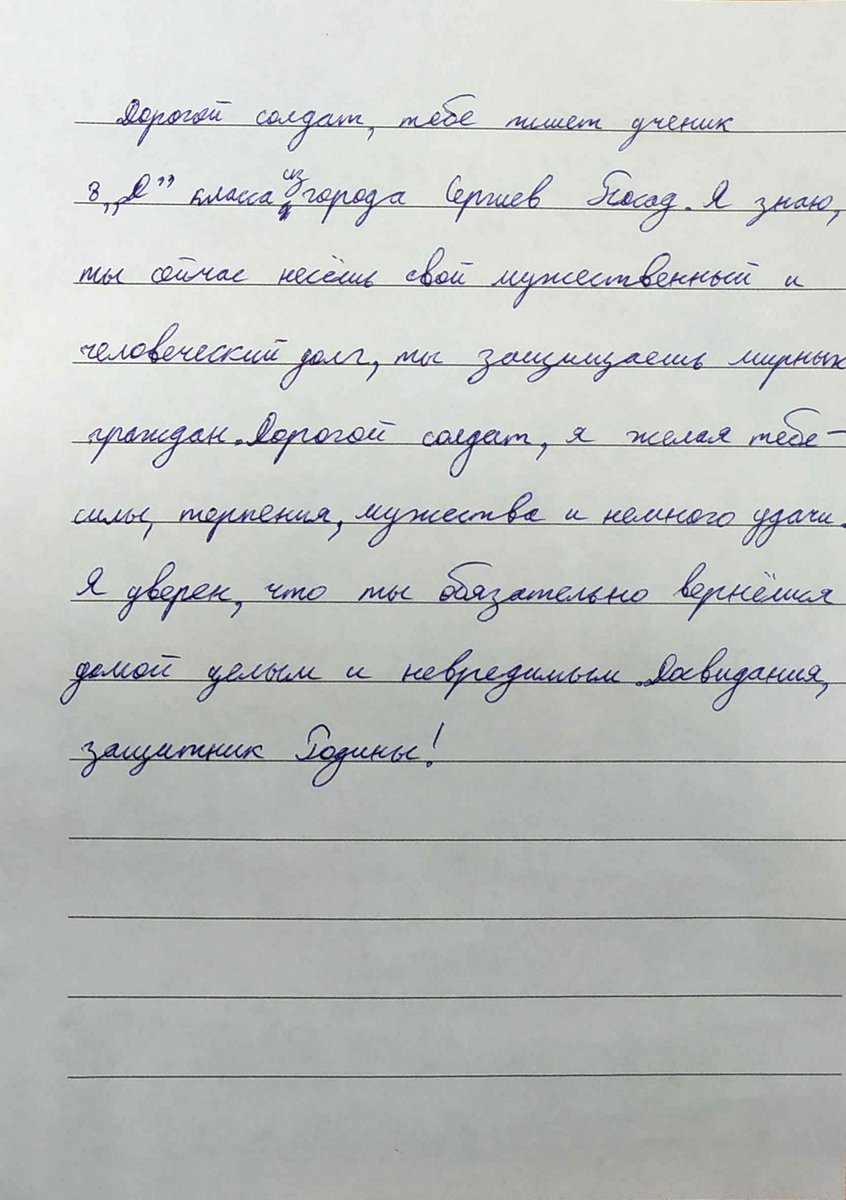 Дорогой солдат, тебе пишет ученик
8 „Д” класса из города Сергиев Посад. Я знаю,
ты сейчас несёшь свой мужественный и
человеческий долг, ты защищаешь мирных
граждан. Дорогой солдат, я желая тебе-
силы, терпения, мужества и немного удачи.
Я уверен, что ты обязательно вернёшся
домой целым и невредимым. Досвидания,
защитник Родины!